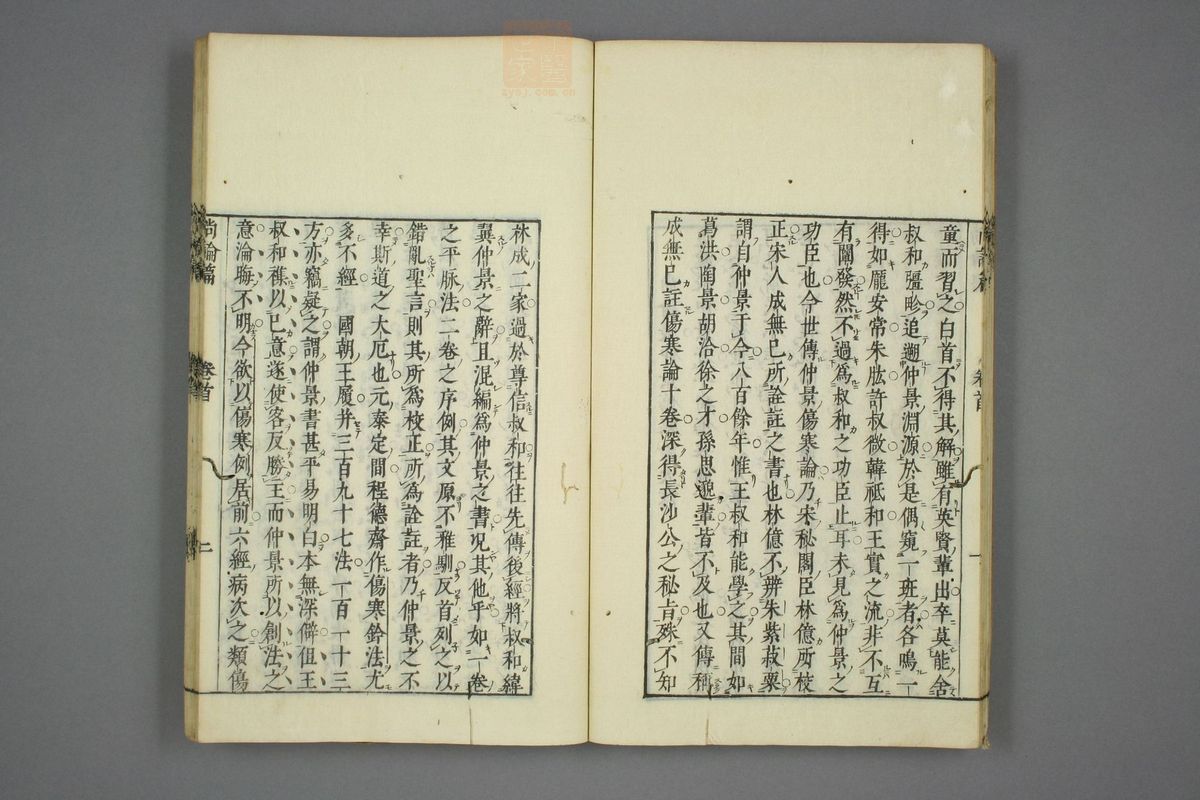 童而習之白首不得其解雖有英賢輩出卒莫能舍
叔和疆畛追遡仲景淵源於是偶窺一班者各鳴一
得如龐安常朱肱許叔微韓祗和王實之流非不互
有闡發然不過爲叔和之功臣止耳未見爲仲景之
功臣也今世傳仲景傷寒論乃宋秘閣臣林億所校
正宋人成無已所詮註之書也林億不辨朱紫菽粟
謂自仲景于今八百餘年惟王叔和能學之其間如
葛洪陶景胡洽徐之才孫思邈輩皆不及也又傳稱
成無已註傷寒論十卷深得長沙公之秘旨殊不知
林成二家過於尊信叔和往往先傳後經將叔和緯
翼仲景之辭且混編爲仲景之書况其他乎如一卷
之平脉法二卷之序例其文原不雅馴反首列之以
錯亂聖言則其所爲校正所爲詮註者乃仲景之不
幸斯道之大厄也元泰定間程德齋作傷寒鈐法尤
多不經 國朝王履并三百九十七法一百一十三
方亦竊疑之謂仲景書甚平易明白本無深僻但王
叔和雜以已意遂使客反勝主而仲景所以創法之
意淪晦不明今欲以傷寒例居前六經病次之類傷
尚論篇 卷首 二
zysj.com.cn